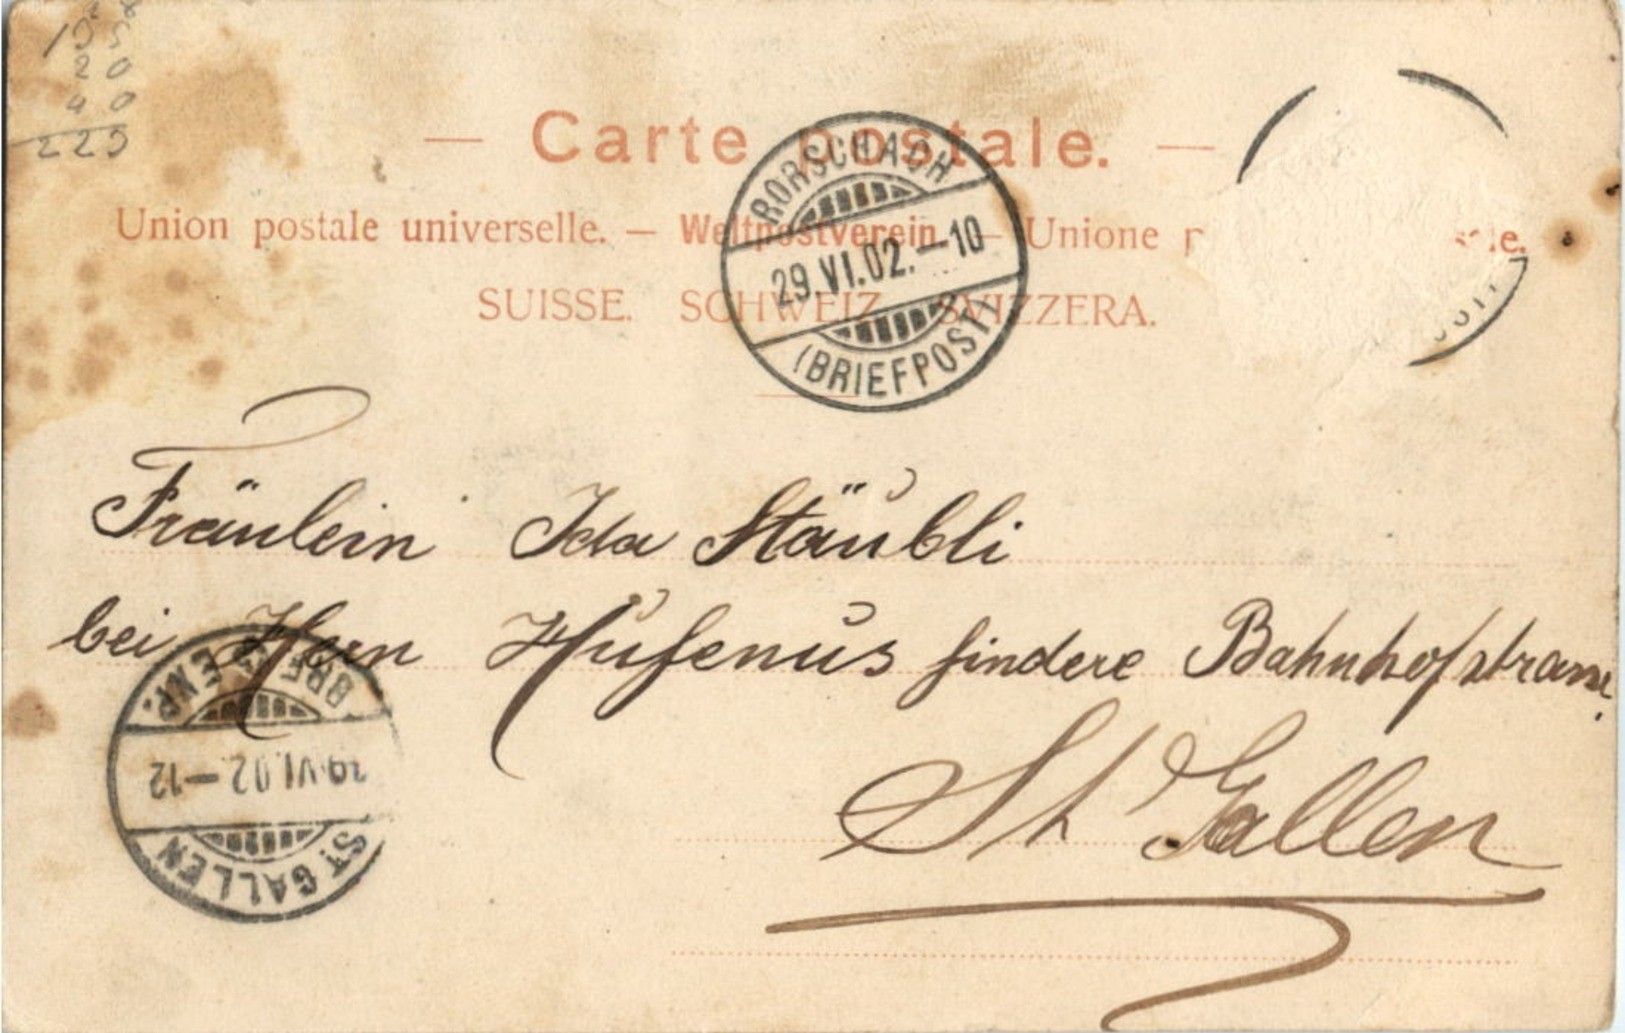 — Carte postale. —
Union postale universelle. — Weltpostverein — Unione
SUISSE. SCHWEIZ SVIZZERA.
RORSCHACH
29.VI.02.–10
(BRIEFPOST)
20
225
Fräulein Ida Stäubli
bei Hern Hufenus hindere Bahnhofstrasse
St Gallen
BRF. EXP.
29.VI.02.–12
ST. GALLEN